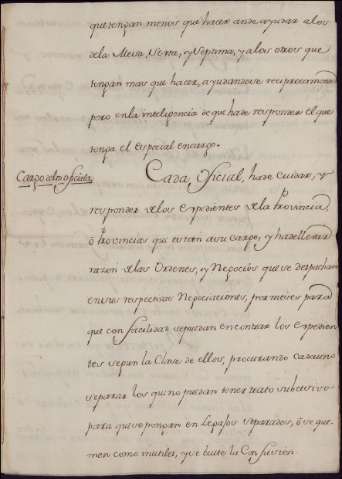 que tengan menos que hacer an de ayudar a los
dela Mesa, Sexta, y Septima, y a los otros que
tengan mas que hacer, ayudandose reciprocamente
pero en la inteligencia de que ha de responder el que
tenga el especial encargo.
Cargo delos oficiales
Cada Oficial, ha de cuidar, y
responder delos Expedientes dela Provincia,
ô Provincias que estan a su cargo, y ha de llevar
razon delas Ordenes, y Negocios que se despachan
en sus respectivas Negociaciones, por meses para
que con facilidad se puedan encontrar los Expedien
tes segun la Clase de ellos, procurando cada uno
separar los que no puedan tener trato subcesivo
para que se pongan en Legajos separados, ô se que
men como inutiles, y se evite la Confusion.